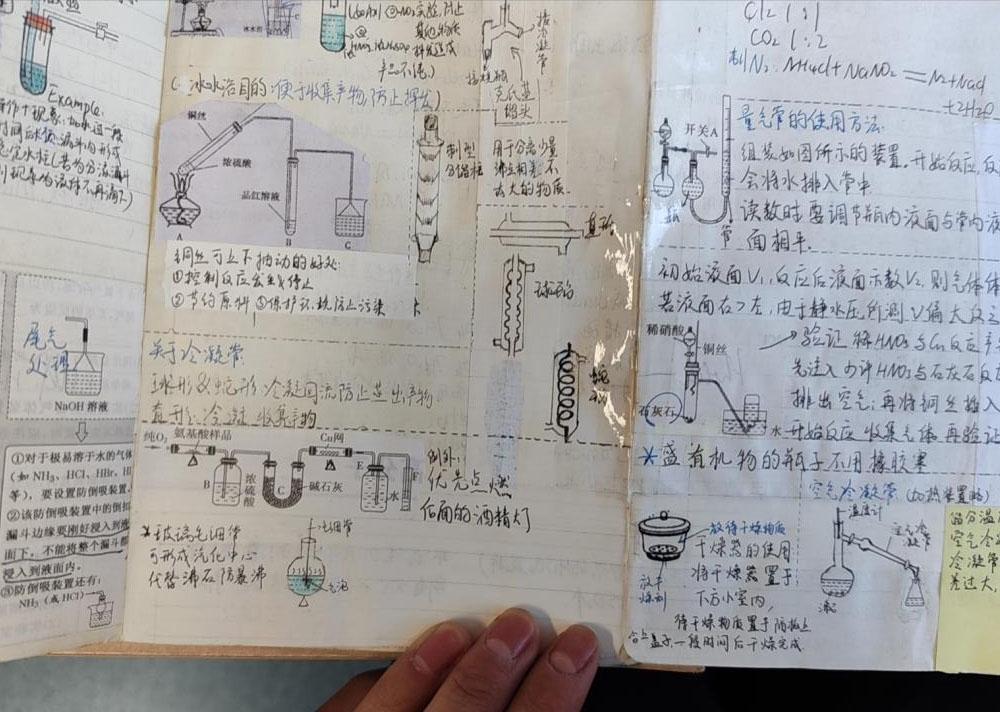 Example.
尾气
处理
NaOH 溶液
①对于极易溶于水的气体
(如 NH₃、HCl、HBr、HI
等)，要设置防倒吸装置，
②该防倒吸装置中的倒扣
漏斗边缘要刚好浸入到液
面下，不能将整个漏斗都
浸入到液面内。
③防倒吸装置还有:
NH₃ (或 HCl)
(冰水浴目的:便于收集产物,防止挥发)
铜丝
浓硫酸
品红溶液
A
B
C
铜丝可上下抽动的好处:
①控制反应发生或停止
②节约原料 ③保护环境防止污染
关于冷凝管
球形&蛇形:冷凝回流防止蒸出产物
直形:冷凝收集产物
纯O₂
氨基酸样品
Cu网
B
浓硫酸
C
碱石灰
E
水
F
例外:
优先点燃
后面的酒精灯
*玻璃毛细管
可形成汽化中心
代替沸石防暴沸
毛细管
气泡
克氏蒸
馏头
用于分离少量
沸点相差不
太大的物质.
直形
球形
蛇形
Cl₂ 1:1
CO₂ 1:2
制N₂: NH₄Cl+NaNO₂=N₂+NaCl
+2H₂O
量气管的使用方法:
开关A
组装如图所示的装置.开始反应,反
会将水排入管中
读数时要调节瓶内液面与管内液
面相平.
初始液面V₁,反应后液面示数V₂,则气体体
若液面右>左,由于静水压所测V偏大反之
稀硝酸
铜丝
石灰石
水
验证稀HNO₃与Cu反应产
先注入少许HNO₃与石灰石反应
排出空气;再将铜丝插入
开始反应收集气体再验证
*盛有机物的瓶子不用橡胶塞
空气冷凝管 (加热装置略)
温度计
空气冷
凝管
放待干燥物质
干燥器的使用
将干燥剂置于
下方小室内,
待干燥物质置于隔板上
合上盖子.一段时间后干燥完成.
放干
燥剂